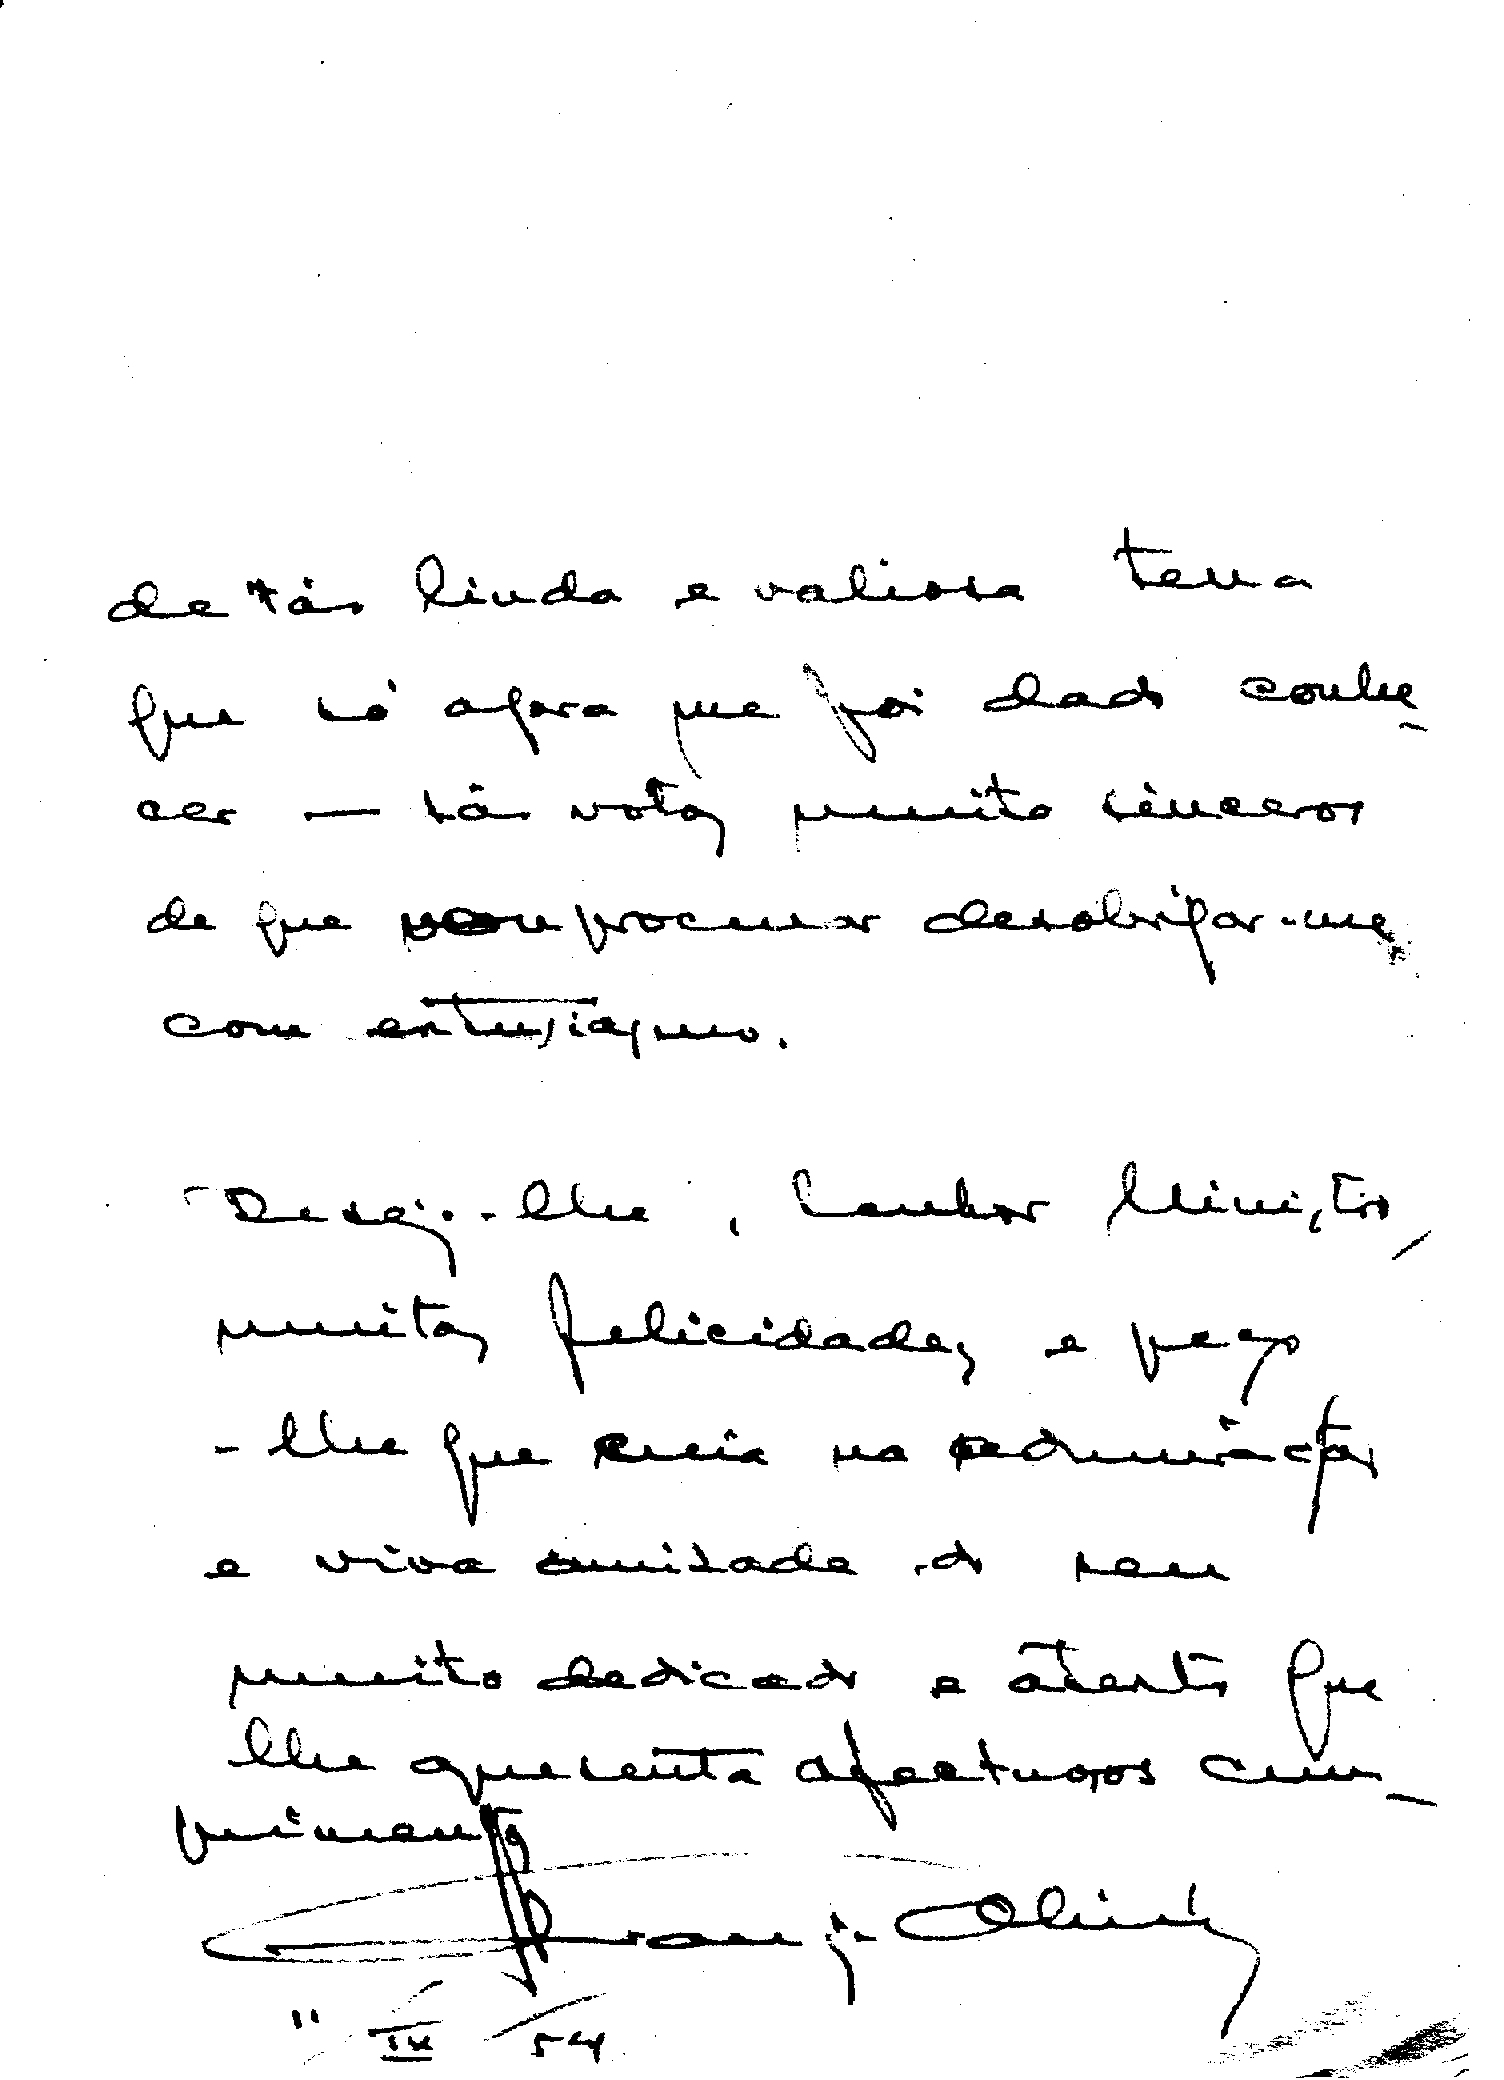 de tão linda e valiosa terra
que só agora me foi dado conhe-
cer — são votos muito sinceros
de que vou procurar desobrigar-me
com entusiasmo.
Desejo-lhe, Senhor Ministro,
muitas felicidades e peço
-lhe que creia na admiração
e viva amizade do seu
muito dedicado e atento que
lhe apresenta afectuosos cum-
primentos
11 / IX / 54